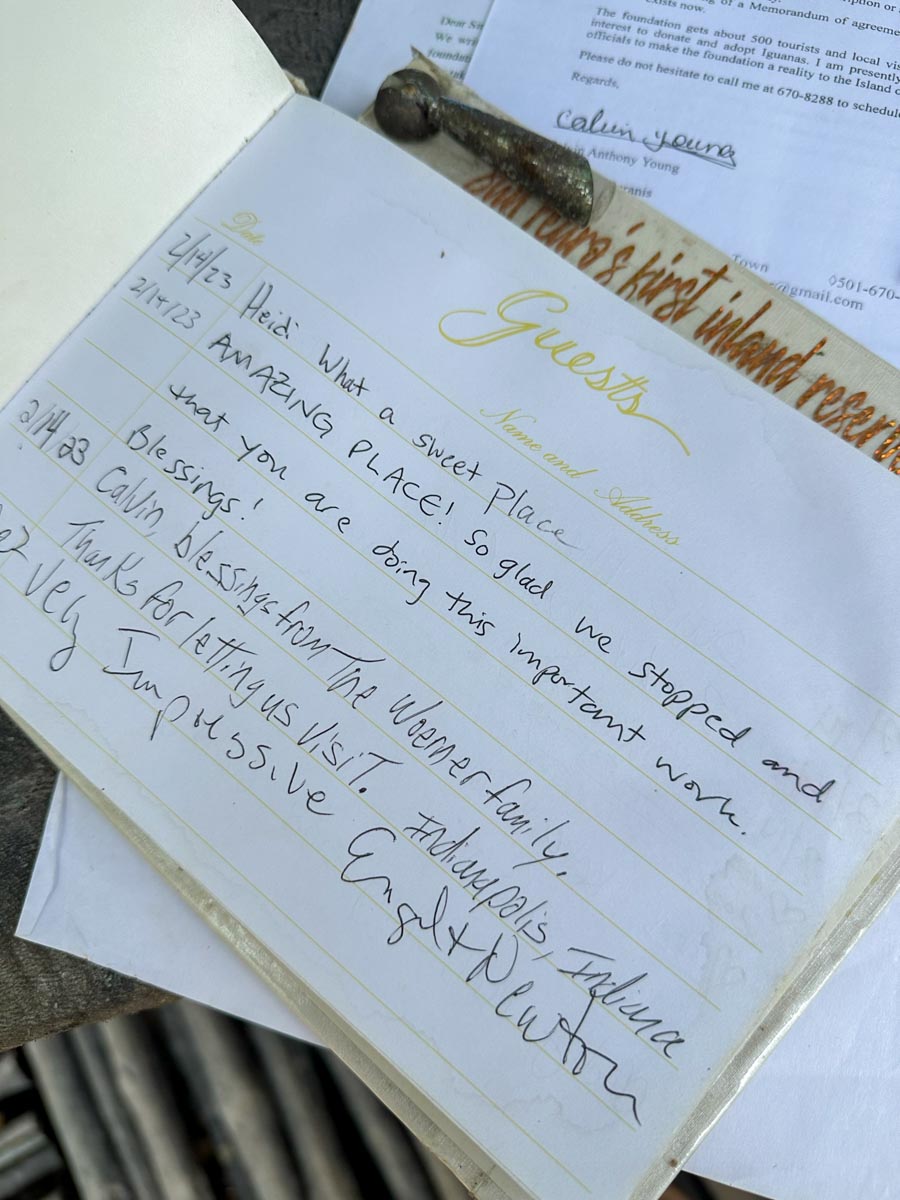 Dear
We
of a Memorandum of agreeme
exists now.
The foundation gets about 500 tourists and local vis
interest to donate and adopt Iguanas. I am presently
officials to make the foundation a reality to the Island
Please do not hesitate to call me at 670-8288 to schedul
Regards,
Calvin Young
Anthony Young
Town
0501-670-
@gmail.com
first inland reserve
Guests
Date
Name and Address
2/14/23 Heidi What a sweet Place
2/14/23 AMAZING PLACE! So glad we stopped and
that you are doing this important work.
Blessings!
2/14/23 Calvin, blessings from The Woerner family.
Thanks for letting us visit. Indianapolis, Indiana
Very Impressive Newton